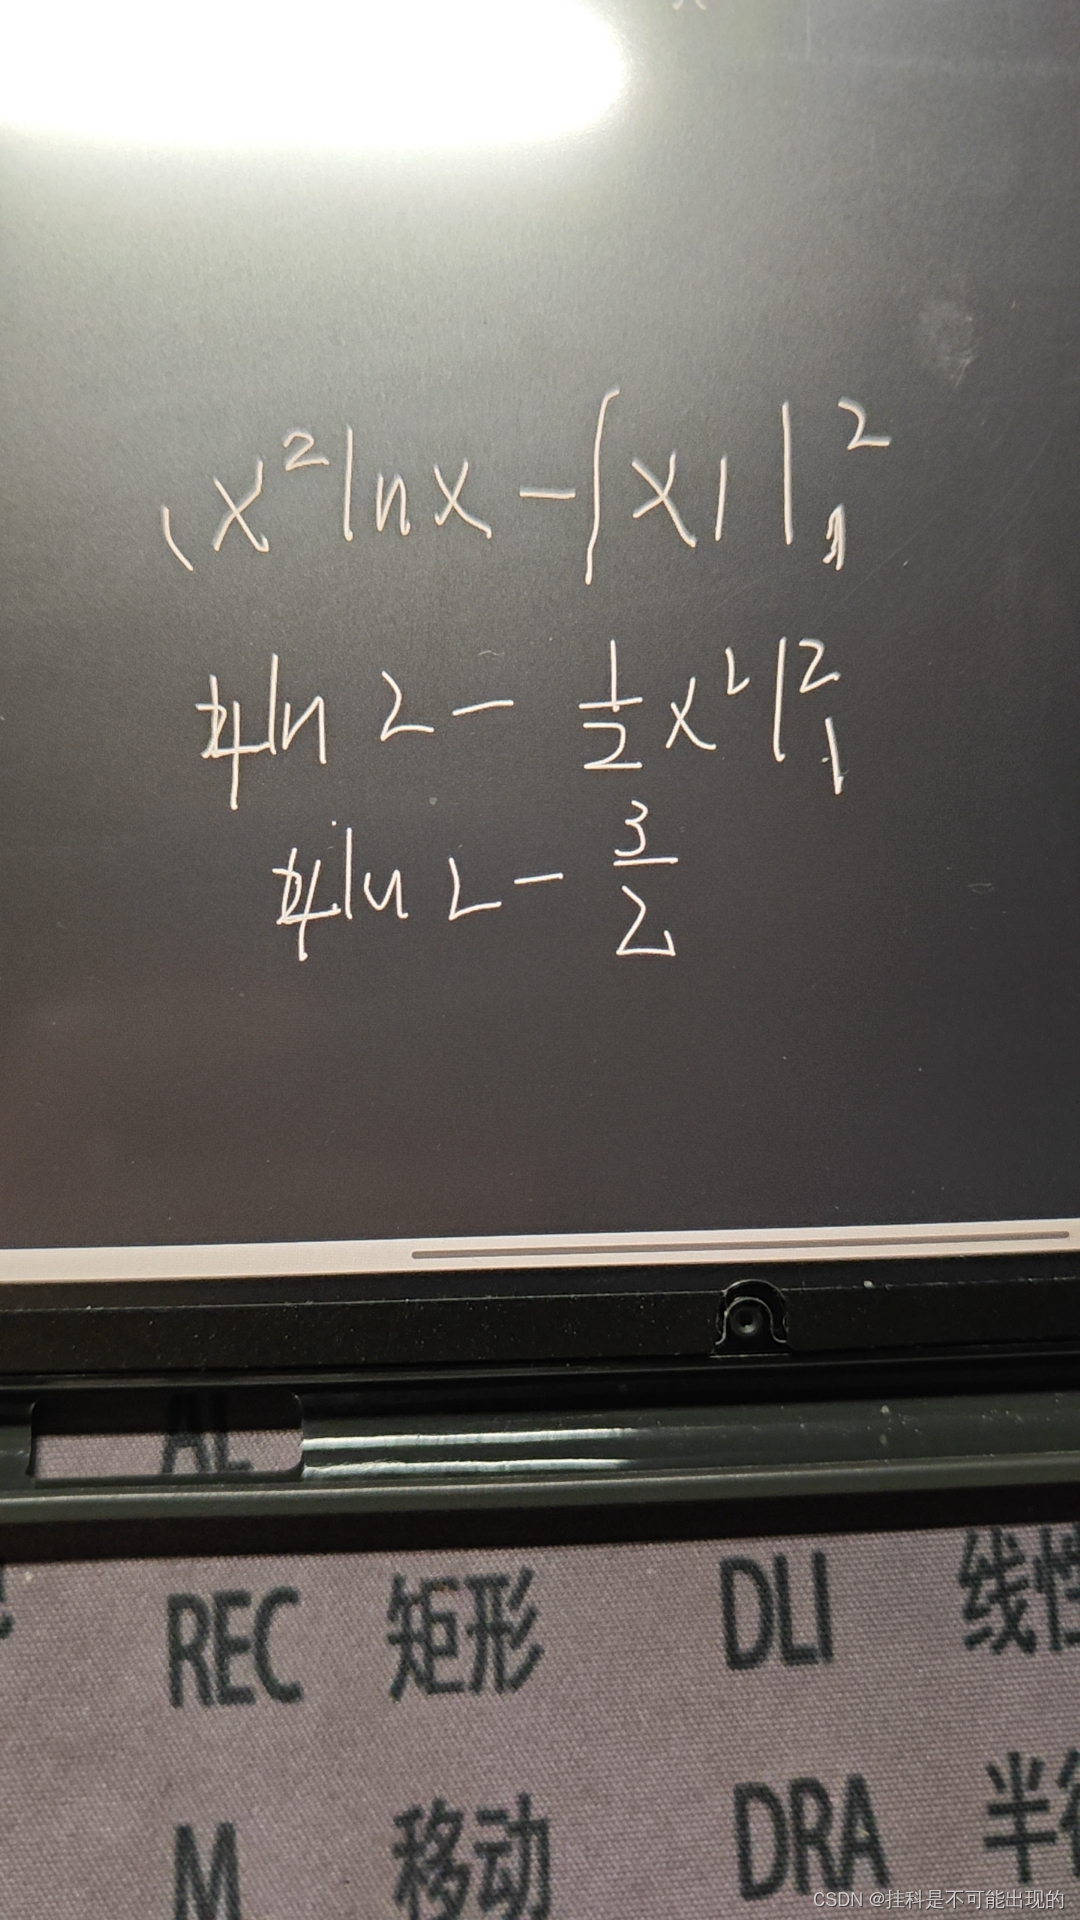 x²lnx-∫x||₁²
4ln 2 - 1/2 x²|₁²
4ln 2 - 3/2
AL
REC 矩形 DLI 线性
M 移动 DRA 半径
CSDN @挂科是不可能出现的